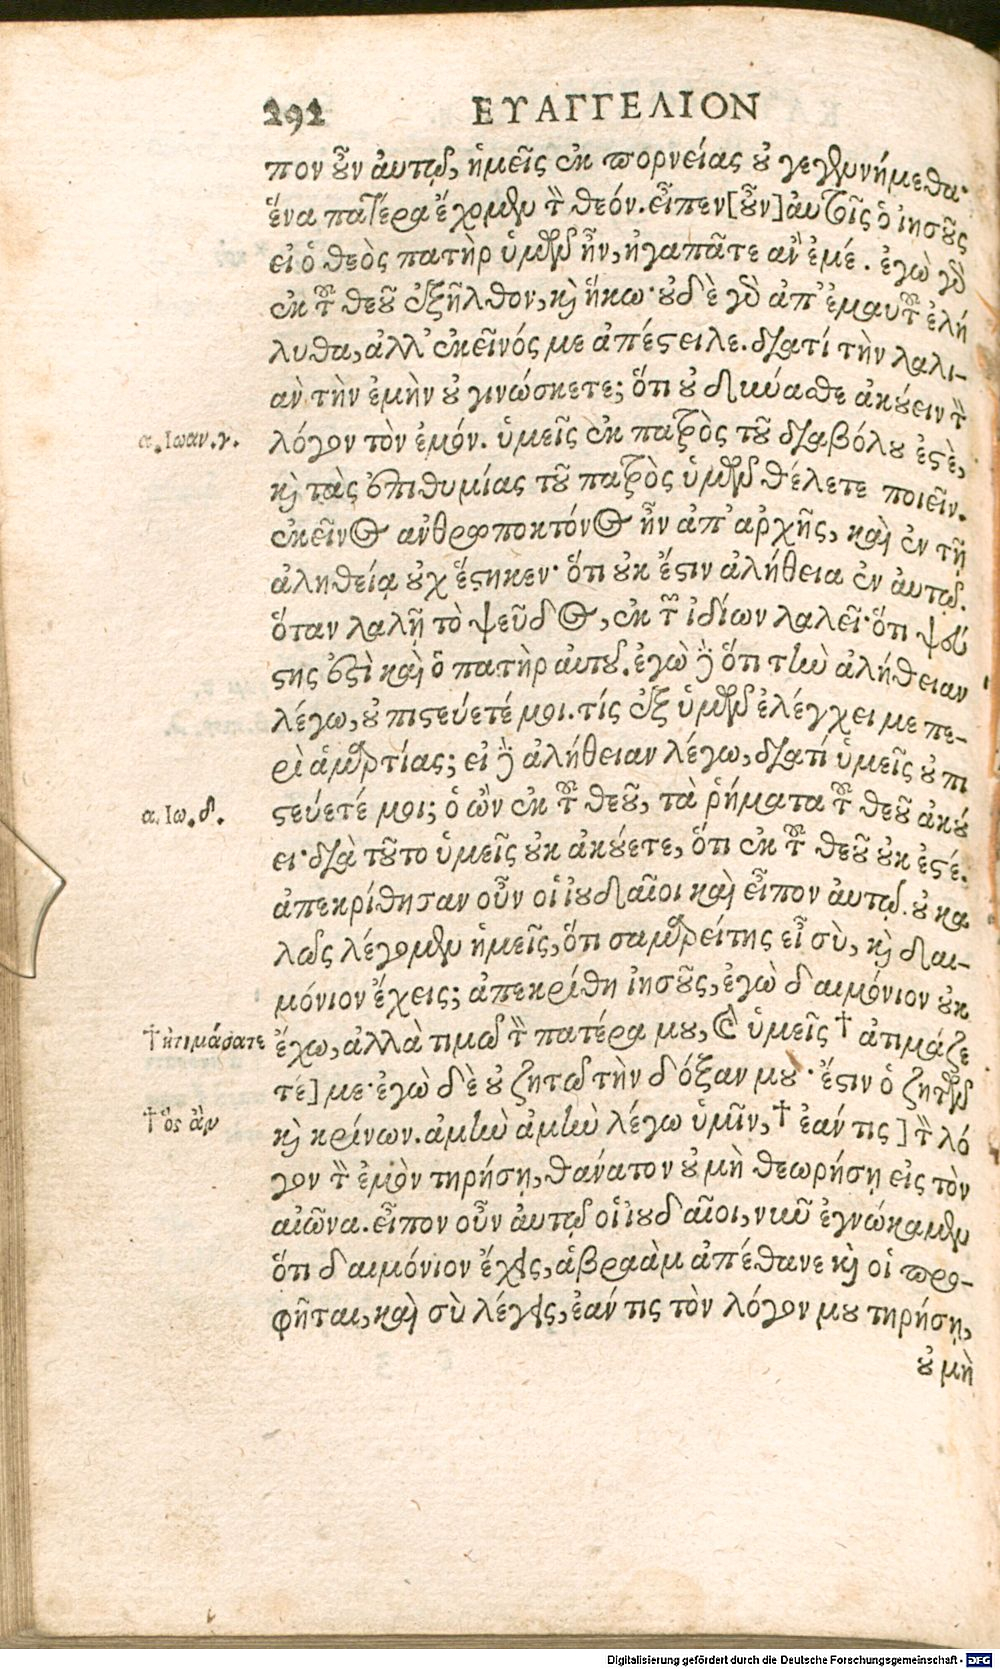 292 ΕΥΑΓΓΕΛΙΟΝ
πον ȣ̓͂ν ἀυτῷ, ἡμεῖς ἐκ πορνείας ȣ̓ γεγεννήμεθα·
ἕνα πατέρα ἔχομεν τὸν θεόν. εἶπεν[ȣ̓͂ν]ἀυτοῖς ὁ ἰησȣ͂ς
εἰ ὁ θεὸς πατὴρ ὑμῶν ἦν, ἠγαπᾶτε ἀν ἐμέ. ἐγὼ γὰρ
ἐκ τοῦ θεȣ͂ ἐξῆλθον, κ̀ ἥκω· ȣ̓δὲ γὰρ ἀπ' ἐμαυτοῦ ἐλή
λυθα, ἀλλ' ἐκεῖνός με ἀπέϛειλε. διατί τὴν λαλι-
ὰν τὴν ἐμὴν ȣ̓ γινώσκετε; ὅτι ȣ̓ δύναϲθε ἀκȣ́ειν τὸν
α. Ιωαν. γ. λόγον τὸν ἐμόν. ὑμεῖς ἐκ πατρὸς τȣ͂ διαβόλȣ ἐϛὲ,
κ̀ τὰς ἐπιθυμίας τȣ͂ πατρὸς ὑμῶν θέλετε ποιεῖν.
ἐκεῖνος ἀνθρωποκτόνος ἦν ἀπ' ἀρχῆς, καὶ ἐν τῇ
ἀληθείᾳ ȣ̓χ ἕϛηκεν· ὅτι ȣ̓κ ἔϛιν ἀλήθεια ἐν ἀυτῷ.
ὅταν λαλῇ τὸ ψεῦδος, ἐκ τῶν ἰδίων λαλεῖ· ὅτι ψεύ
ϛης ἐϛὶ καὶ ὁ πατὴρ ἀυτȣ͂. ἐγὼ δὲ ὅτι τὴν ἀλήθειαν
λέγω, ȣ̓ πιϛεύετέ μοι. τίς ἐξ ὑμῶν ἐλέγχει με πε-
ρὶ ἁμαρτίας; εἰ δὲ ἀλήθειαν λέγω, διατί ὑμεῖς ȣ̓ πι
α. Ιω. δ. ϛεύετέ μοι; ὁ ὢν ἐκ τοῦ θεȣ͂, τὰ ῥήματα τοῦ θεȣ͂ ἀκȣ́
ει· διὰ τȣ͂το ὑμεῖς ȣ̓κ ἀκȣ́ετε, ὅτι ἐκ τοῦ θεȣ͂ ȣ̓κ ἐϛέ.
ἀπεκρίθησαν οὖν οἱ ἰȣδαῖοι καὶ εἶπον ἀυτῷ. ȣ̓ κα
λῶς λέγομεν ἡμεῖς, ὅτι σαμαρείτης εἶ σὺ, κ̀ δαι-
μόνιον ἔχεις; ἀπεκρίθη ἰησȣ͂ς, ἐγὼ δαιμόνιον ȣ̓κ
†ἠτιμάσατε ἔχω, ἀλλὰ τιμῶ τὸν πατέρα μȣ, καὶ ὑμεῖς † ἀτιμάζε
τέ] με· ἐγὼ δὲ ȣ̓ ζητῶ τὴν δόξαν μȣ· ἔϛιν ὁ ζητῶν
†ὃς ἂν κ̀ κρίνων. ἀμὴν ἀμὴν λέγω ὑμῖν, † ἐάν τις ] τὸν λό
γον τὸν ἐμὸν τηρήσῃ, θάνατον ȣ̓ μὴ θεωρήσῃ εἰς τὸν
αἰῶνα. εἶπον οὖν ἀυτῷ οἱ ἰȣδαῖοι, νῦν ἐγνώκαμεν
ὅτι δαιμόνιον ἔχεις, ἀβραὰμ ἀπέθανε κ̀ οἱ προ-
φῆται, καὶ σὺ λέγεις, ἐάν τις τὸν λόγον μȣ τηρήσῃ,
ȣ̓ μὴ
Digitalisierung gefördert durch die Deutsche Forschungsgemeinschaft - DFG